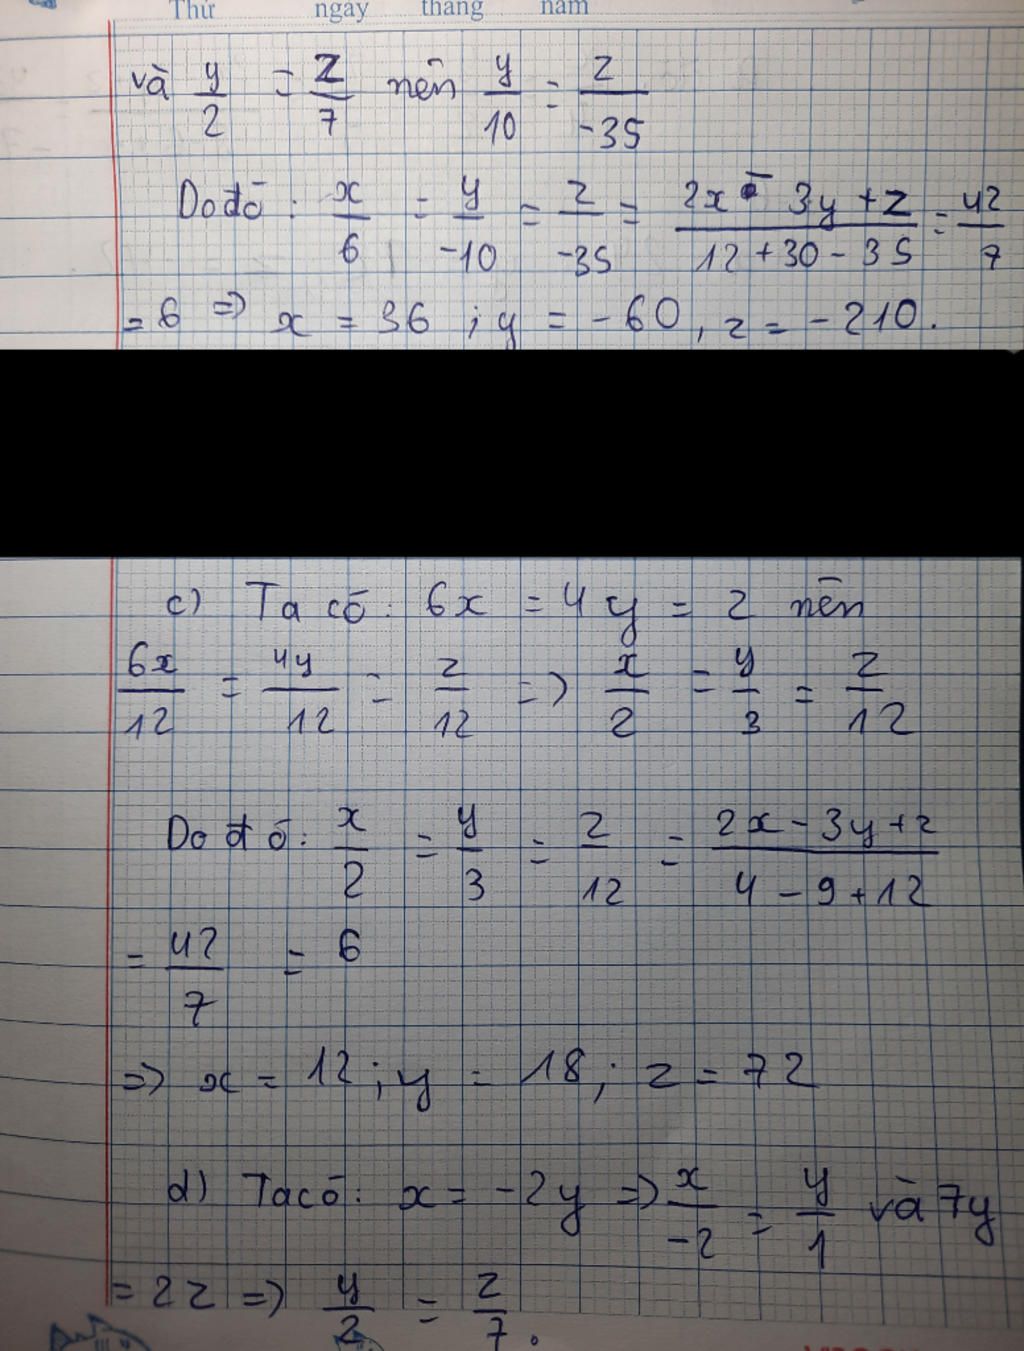 Thứ ngày tháng năm
và y/2 = z/7 nên y/10 = z/-35
Do đó: x/6 = y/-10 = z/-35 = (2x - 3y + z)/(12 + 30 - 35) = 42/7
= 6 => x = 36; y = -60, z = -210.
c) Ta có: 6x = 4y = z nên
6x/12 = 4y/12 = z/12 => x/2 = y/3 = z/12
Do đó: x/2 = y/3 = z/12 = (2x - 3y + z)/(4 - 9 + 12)
= 42/7 = 6
=> x = 12; y = 18; z = 72
d) Ta có: x = -2y => x/-2 = y/1 và 7y
= 2z => y/2 = z/7.